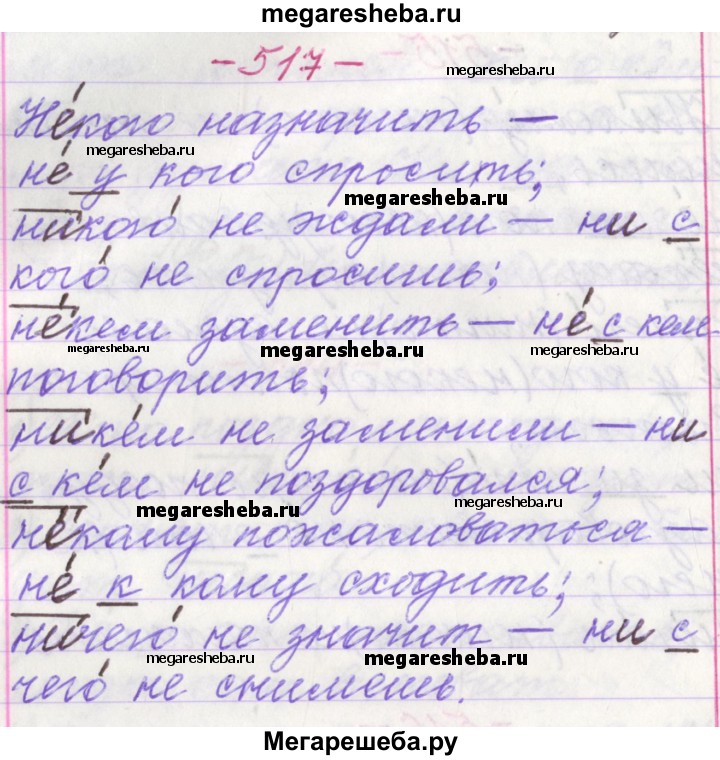 megaresheba.ru
- 517 -
megaresheba.ru
Не́кого назначить —
megaresheba.ru
не́ у кого спросить;
megaresheba.ru
никого́ не ждали — ни с
кого́ не спросишь;
не́кем заменить — не́ с кем
megaresheba.ru
megaresheba.ru
поговорить;
нике́м не заменили — ни
с ке́м не поздоровался;
megaresheba.ru
megaresheba.ru
не́кому пожаловаться —
не́ к кому сходить;
ничего́ не значит — ни с
megaresheba.ru
megaresheba.ru
чего́ не снимешь.
Мегарешеба.ру